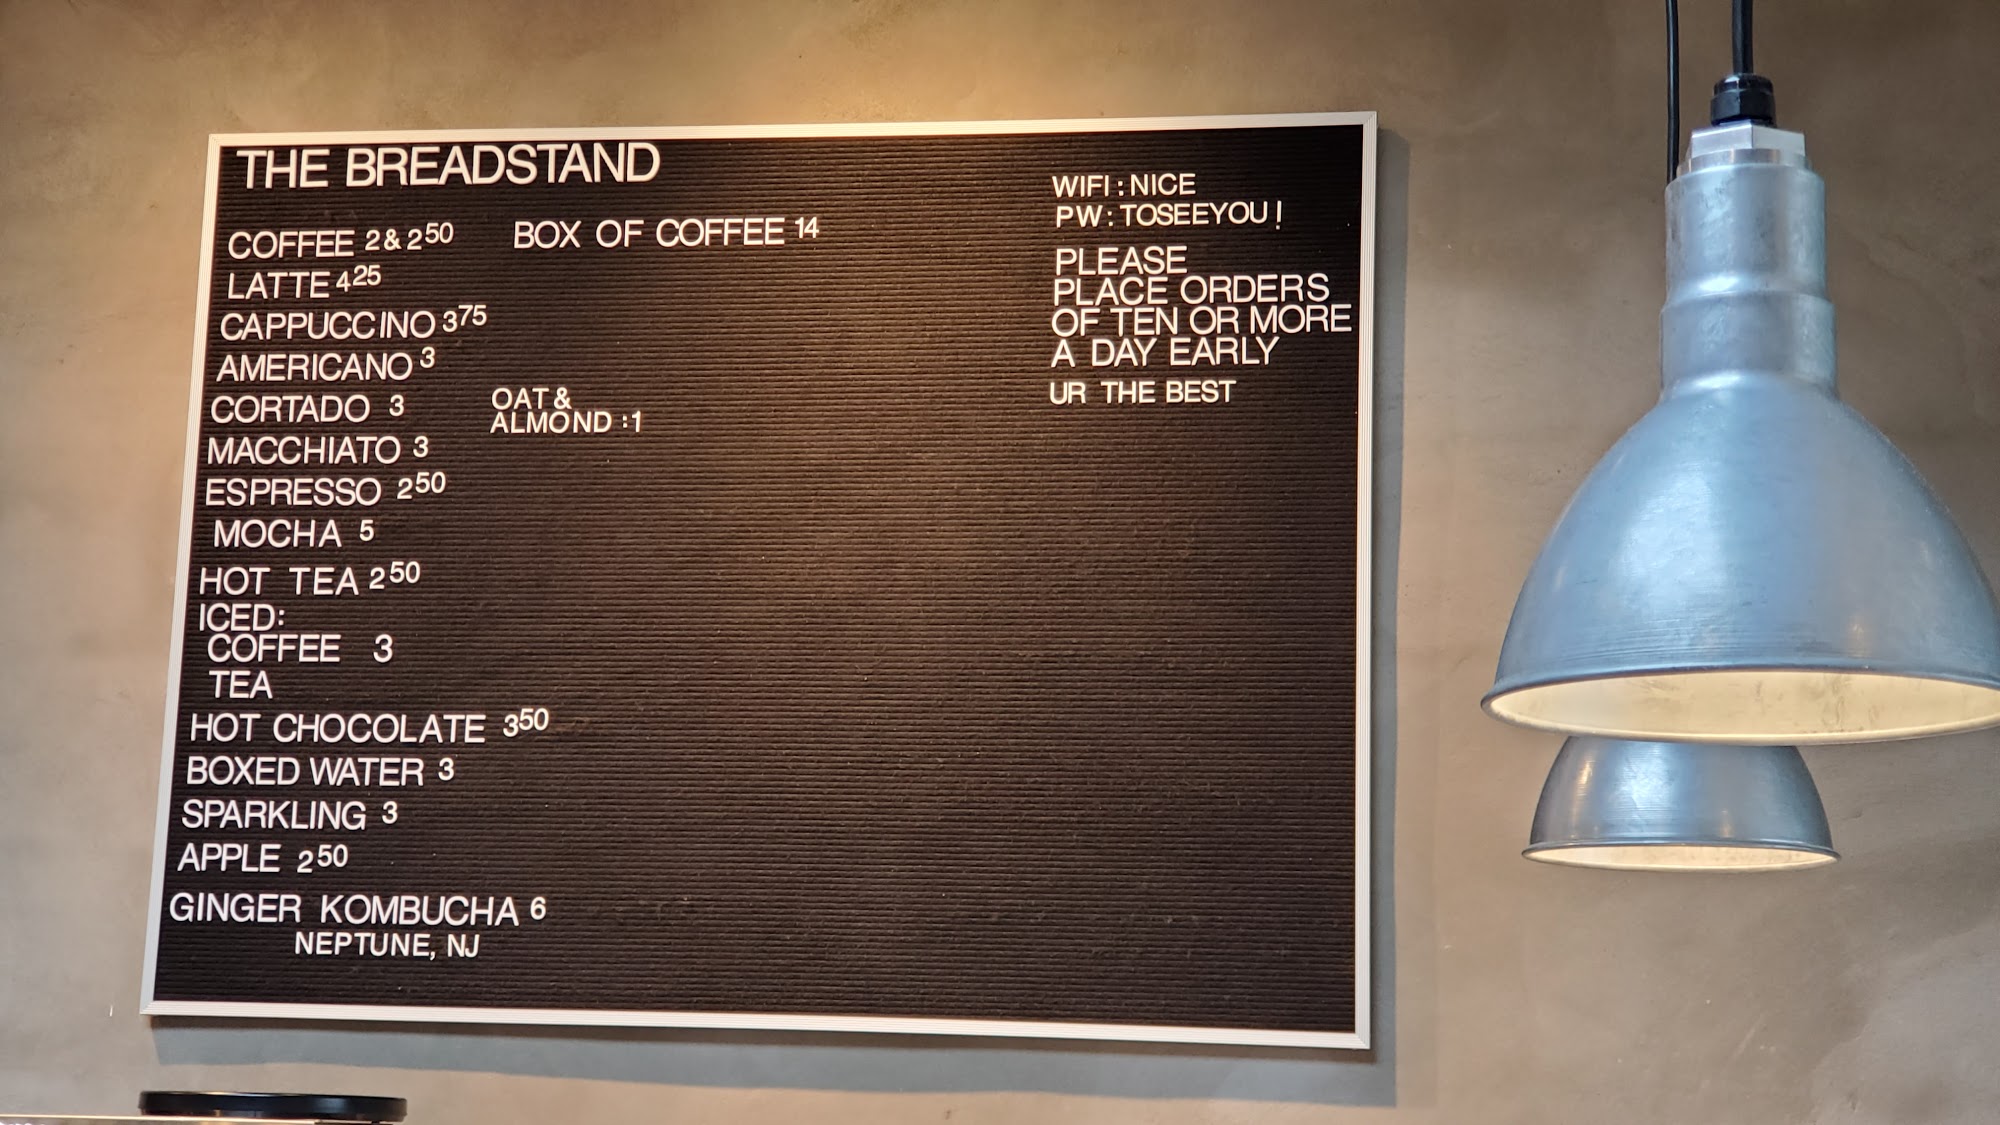 THE BREADSTAND
COFFEE 2 & 2 50 BOX OF COFFEE 14
LATTE 4 25
CAPPUCCINO 3 75
AMERICANO 3
CORTADO 3
MACCHIATO 3
ESPRESSO 2 50
MOCHA 5
HOT TEA 2 50
ICED:
COFFEE 3
TEA
HOT CHOCOLATE 3 50
BOXED WATER 3
SPARKLING 3
APPLE 2 50
GINGER KOMBUCHA 6
NEPTUNE, NJ
OAT &
ALMOND :1
WIFI : NICE
PW : TOSEEYOU!
PLEASE
PLACE ORDERS
OF TEN OR MORE
A DAY EARLY
UR THE BEST